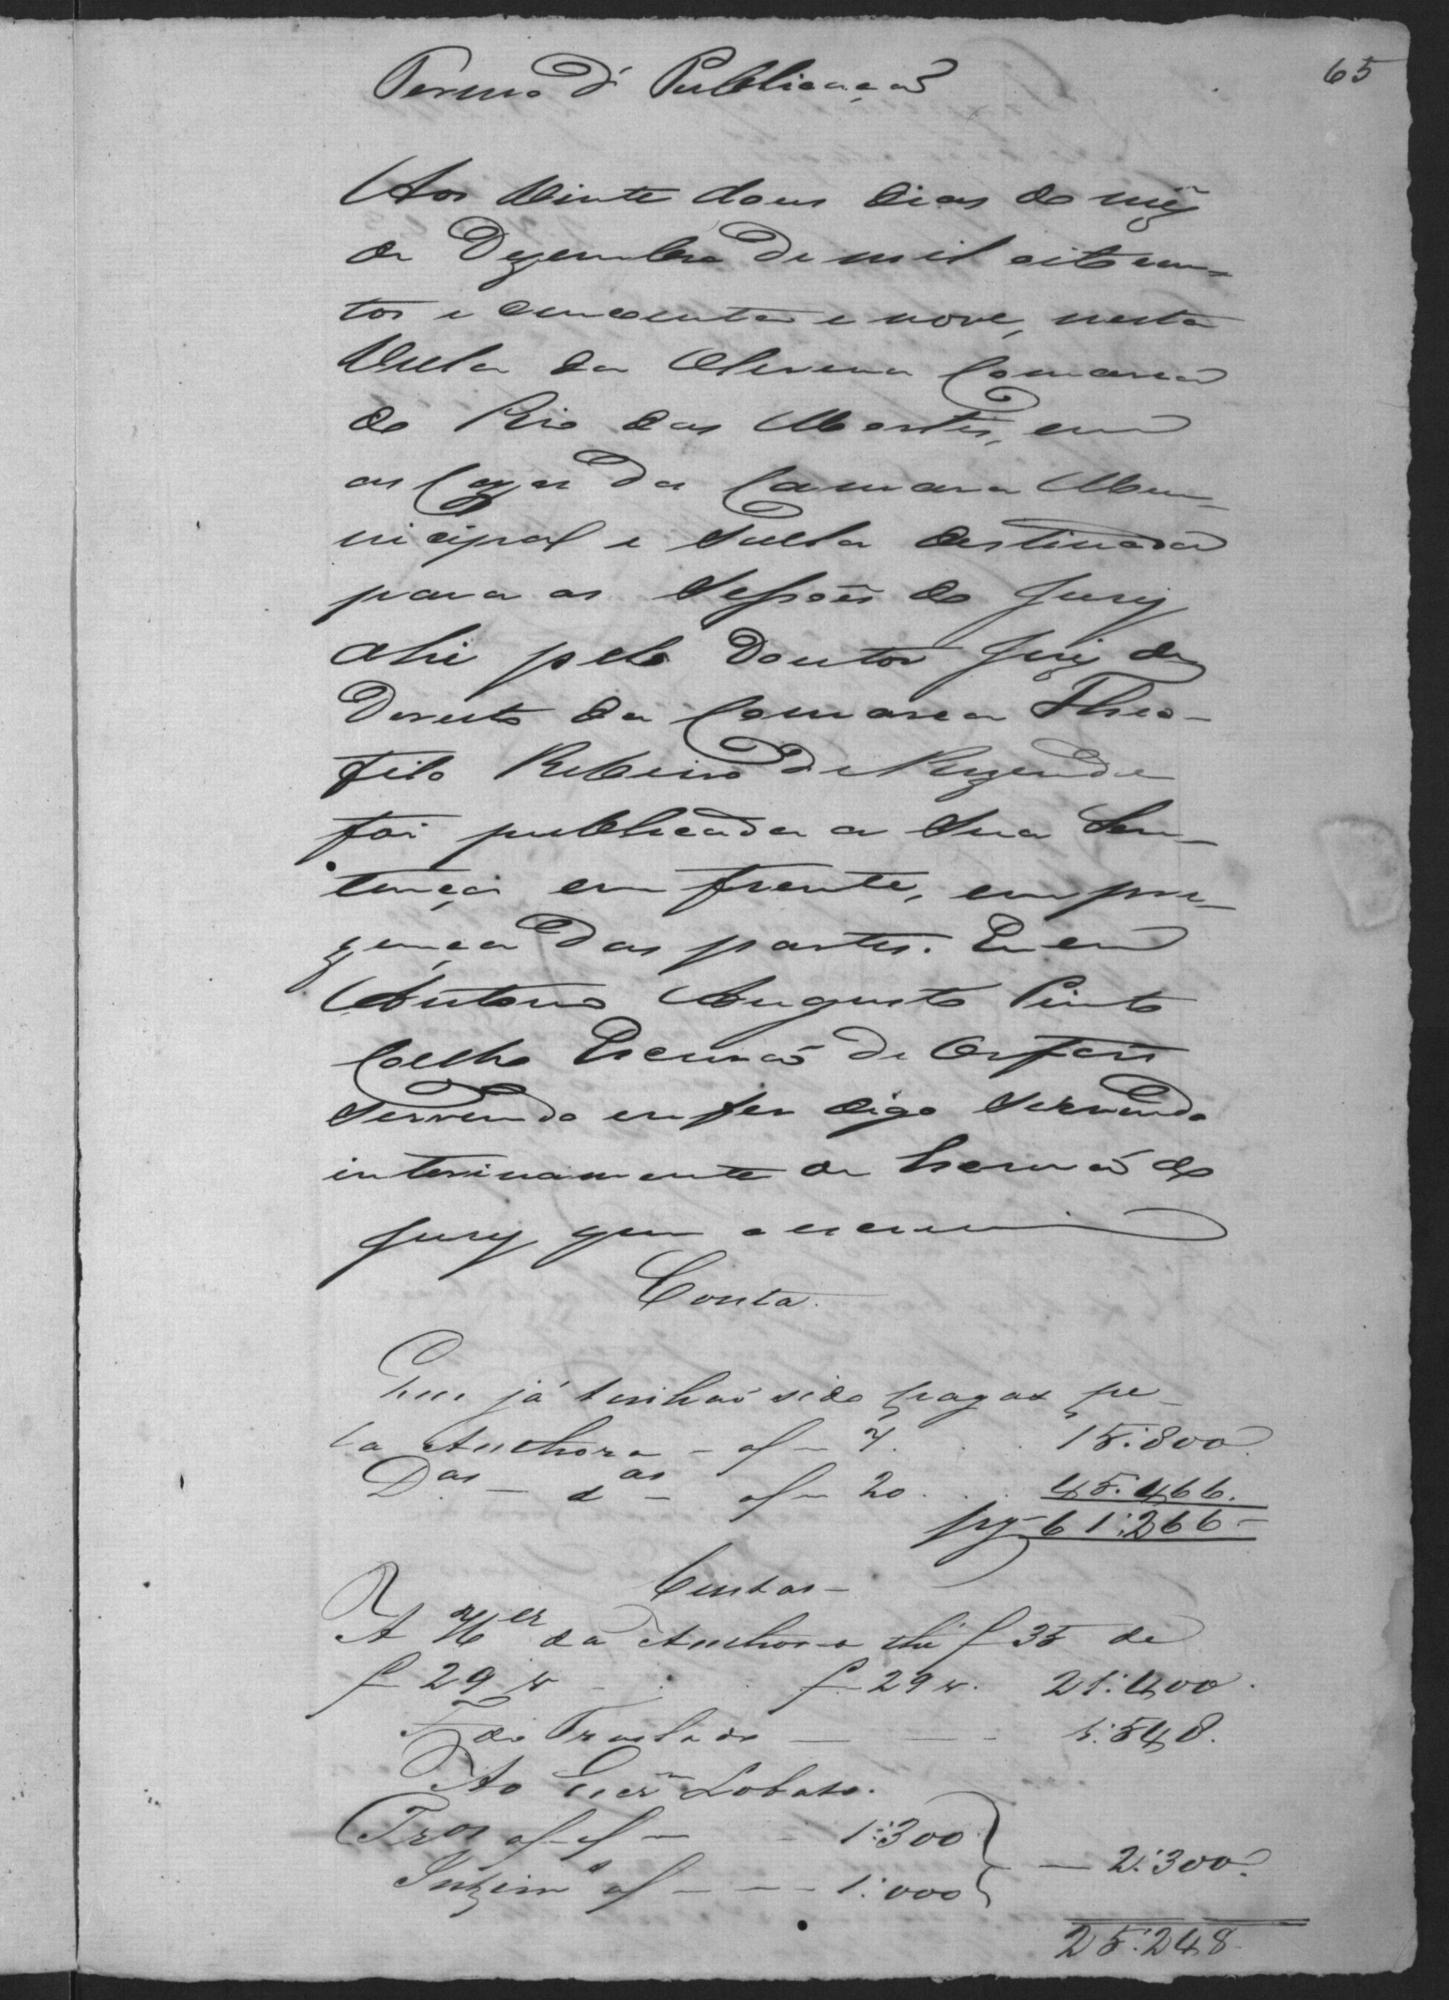 65
Termo d' Publicação
Aos vinte dous dias do mez
de Dezembro de mil oitocen-
tos e cincoenta e nove, nesta
Villa da Oliveira Comarca
do Rio das Mortes, em
as Cazas da Camara Mu-
nicipal e Salla destinada
para as Sessoẽs do Jury
ahi pelo Doutor Juiz de
Dereito da Comarca Theo-
filo Ribeiro de Rezende
foi publicada a sua Sen-
tença em frente, em pre-
zença das partes. Eu
Antonio Augusto Pinto
Coelho Escrivaõ de Orfaõs
servendo digo servindo
interinamente de Escrivaõ do
Jury que o escrevi
Conta
Que já tinhaõ sido pagas pe-
la Authora - af - 7. 15:800
Das - das - af - 20 . . 45.466.
pg 61:266 -
Custas -
A da Authora thé f 35 de
f 29 v - . . f 29 v. 21:400.
do Traslado — — - 1:548.
Ao Escrm Lobato.
af - 1:300
af - - - 1:000 — 2:300.
25:248.